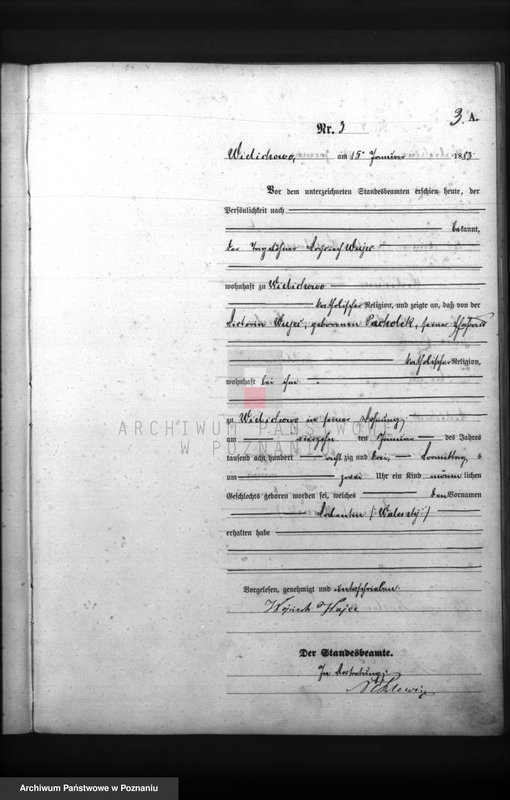 3. A.
Nr. 3
am 15ten Januar 1883
Vor dem unterzeichneten Standesbeamten erschien heute, der
Persönlichkeit nach
bekannt,
der Tagelöhner
wohnhaft zu
katholischer Religion, und zeigte an, daß von der
geborenen seiner Ehefrau
katholischer Religion,
wohnhaft bei ihm
ARCHIWUM PAŃSTWOWE
W POZNANIU
zu in seiner Wohnung,
am vierzehn ten Januar des Jahres
tausend acht hundert acht zig und drei, Vormittag s
um zwei Uhr ein Kind männ lichen
Geschlechts geboren worden sei, welches den Vornamen
Valentin (: Walenty :)
erhalten habe
Vorgelesen, genehmigt und unterschrieben.
Der Standesbeamte.
In Vertretung:
Archiwum Państwowe w Poznaniu